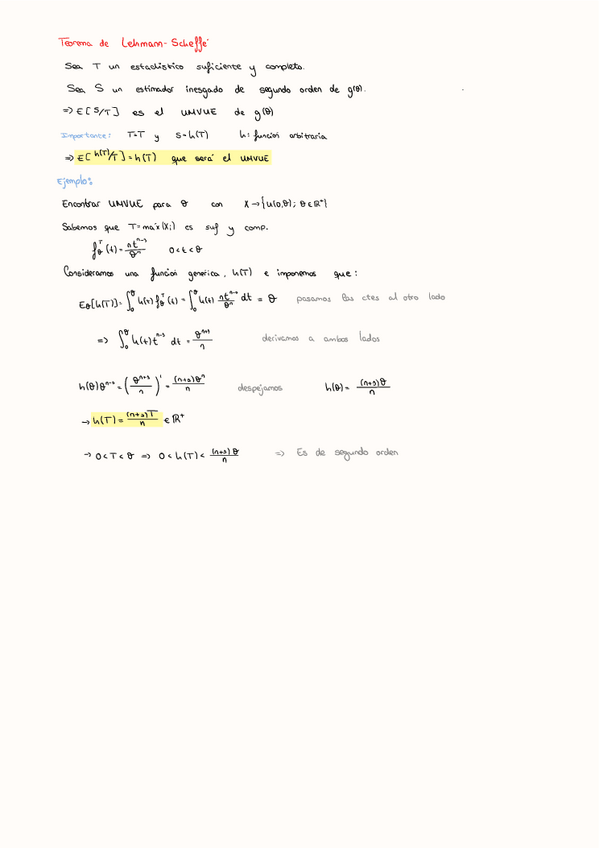 Teorema de Lehmann-Scheffé
Sea T un estadístico suficiente y completo.
Sea S un estimador insesgado de segundo orden de g(θ).
=> E[S/T] es el UMVUE de g(θ)
Importante: T=T y S=h(T) h: función arbitraria
=> E[h(T)/T]=h(T) que será el UMVUE
Ejemplo:
Encontrar UMVUE para θ con X→{U(0,θ); θ∈ℝ⁺}
Sabemos que T=máx(Xᵢ) es suf y comp.
f_θ^T(t)= nt^(n-1)/θ^n 0<t<θ
Consideramos una función generica, h(T) e imponemos que:
E_θ[h(T)]=∫_0^θ h(t) f_θ^T(t) = ∫_0^θ h(t) nt^(n-1)/θ^n dt = θ pasamos las ctes al otro lado
=> ∫_0^θ h(t)t^(n-1) dt = θ^(n+1)/n derivamos a ambos lados
h(θ)θ^(n-1) = (θ^(n+1)/n)' = (n+1)θ^n/n despejamos h(θ)= (n+1)θ/n
→ h(T)= (n+1)T/n ∈ ℝ⁺
→ 0<T<θ => 0<h(T)< (n+1)θ/n => Es de segundo orden